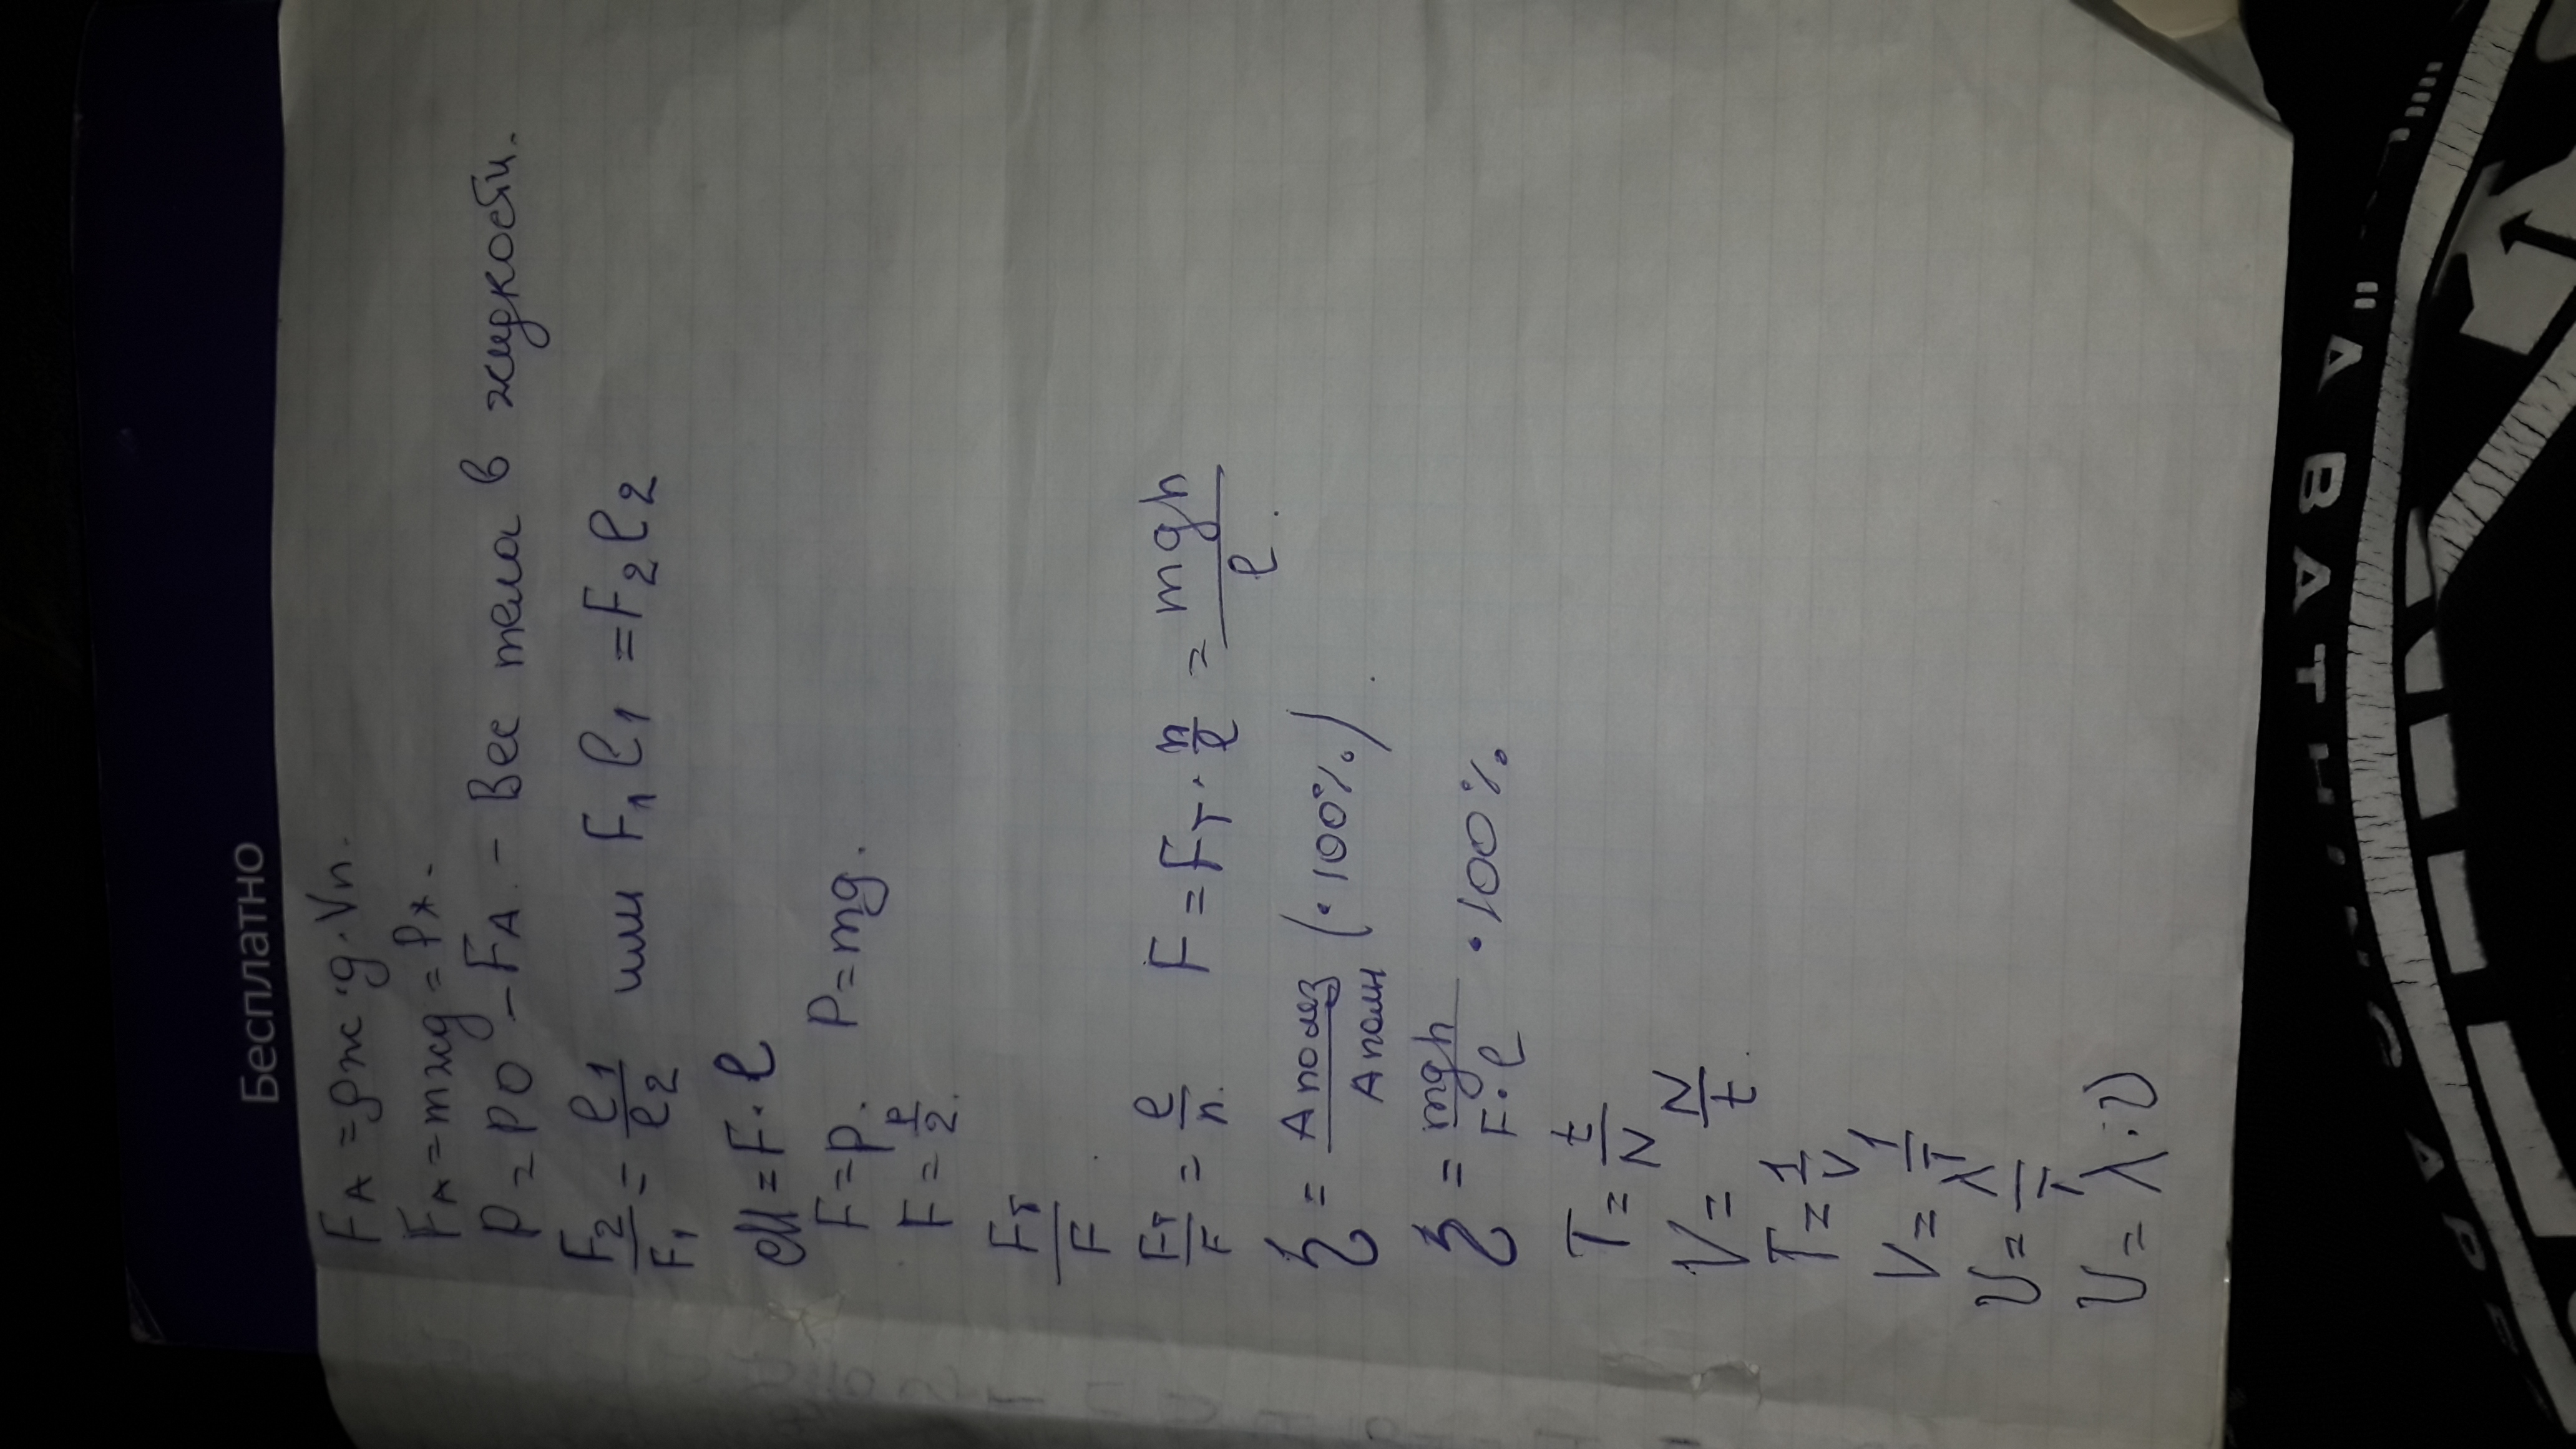 Бесплатно
FA = ρж·g·Vп.
FA = mжg = Pж.
P = P0 – FA. – Вес тела в жидкости.
F2/F1 = l1/l2 или F1l1 = F2l2
M = F·l
F = P. P = mg.
F = P/2.
Fт/F
Fт/F = l/h. F = Fт·h/l = mgh/l.
η = Aполез/Aполн (·100%).
η = mgh/F·l ·100%
T = t/N
V = N/t.
T = 1/V
V = 1/T
υ = λ/T
υ = λ·υ
"А ВАТН